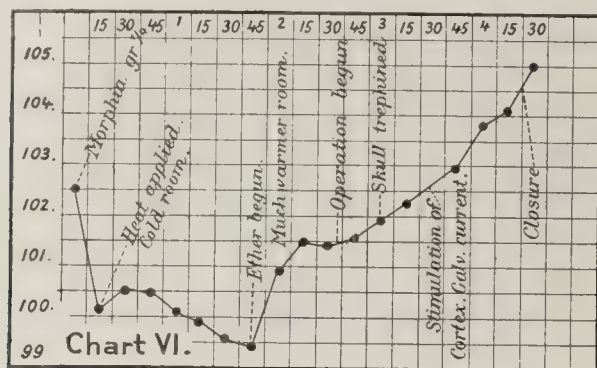 15 30 45 1 15 30 45 2 15 30 45 3 15 30 45 4 15 30
105.
104.
103.
102.
101.
100.
99
Morphia. gr ¼
Heat applied.
Cold room.
Ether begun.
Much warmer room.
Operation begun
Skull trephined
Stimulation of
Cortex. Galv. current.
Closure
Chart VI.